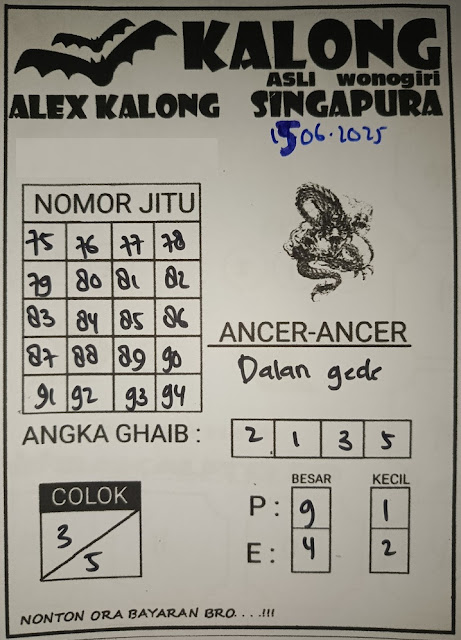 KALONG
ASLI wonogiri
ALEX KALONG SINGAPURA
15 06.2025
NOMOR JITU
75 76 77 78
79 80 81 82
83 84 85 86
87 88 89 90
91 92 93 94
ANCER-ANCER
Dalan gede
ANGKA GHAIB : 2 1 3 5
BESAR KECIL
COLOK
P : 9 1
3
5
E : 4 2
NONTON ORA BAYARAN BRO. . . .!!!